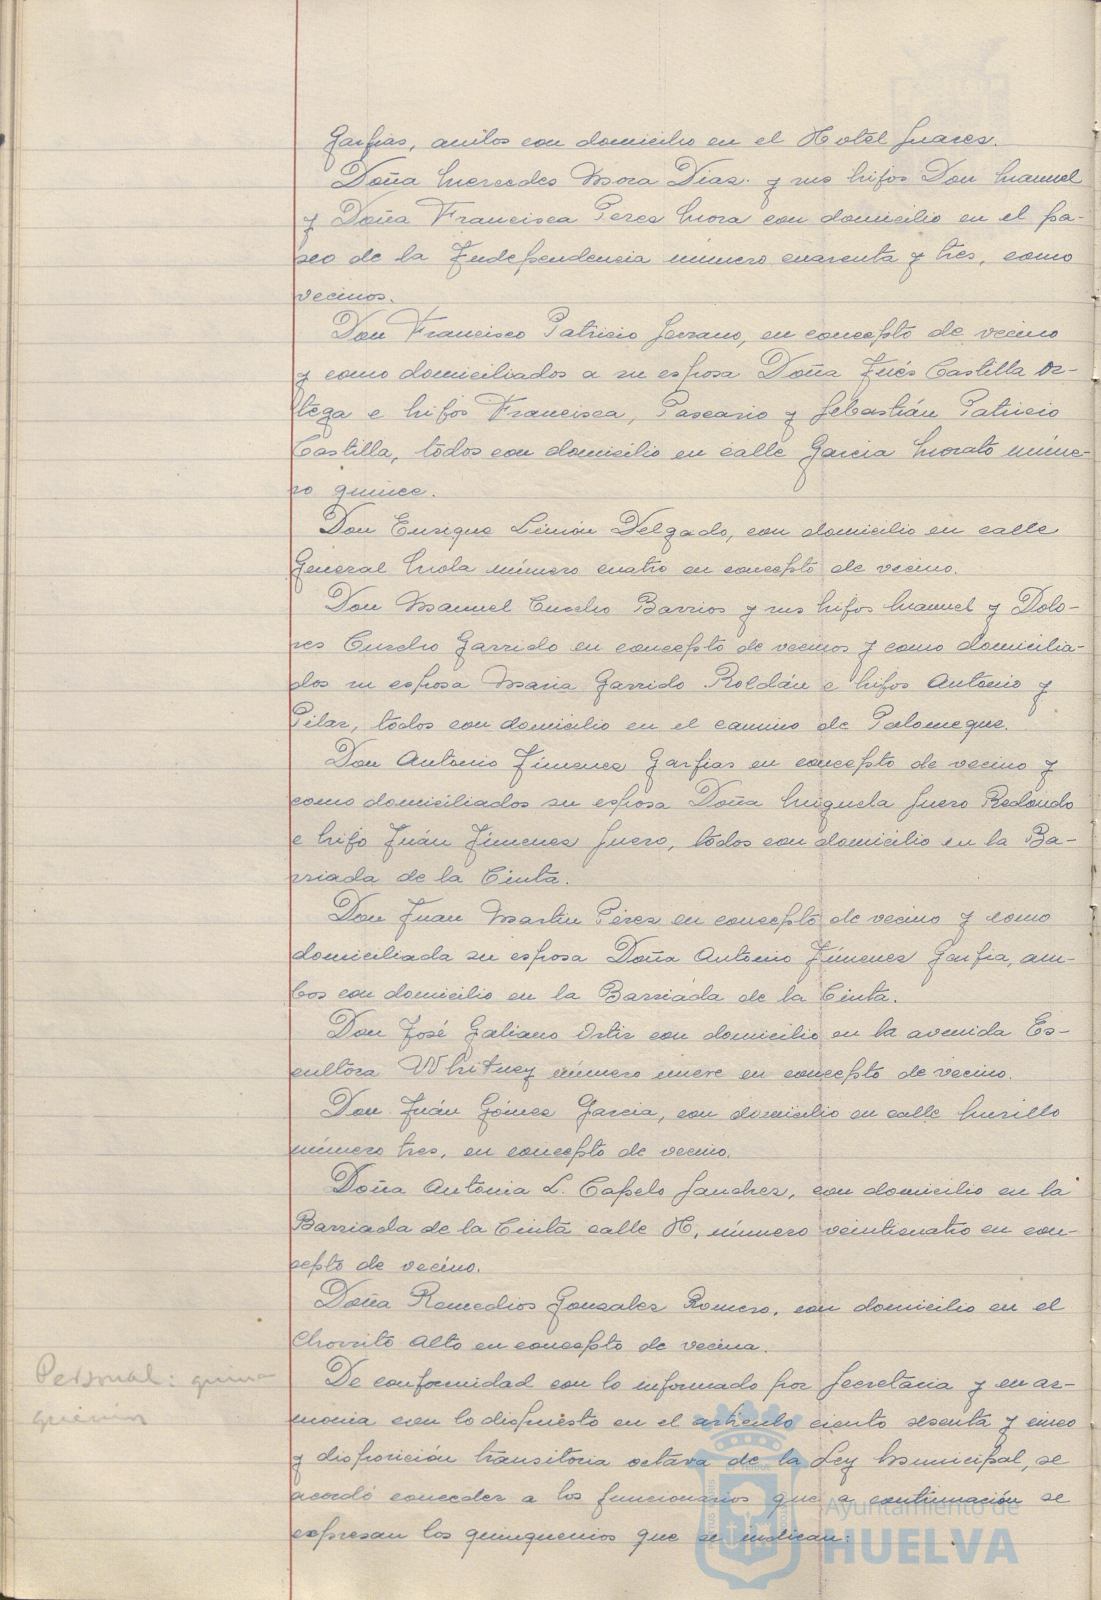 Garfias, ambos con domicilio en el Hotel Suarez.
Doña Mercedes Mora Diaz y sus hijos Don Manuel
y Doña Francisca Perez Mora con domicilio en el pa-
seo de la Independencia número cuarenta y tres, como
vecinos.
Don Francisco Patricio Serrano, en concepto de vecino
y como domiciliados a su esposa Doña Inés Castilla Or-
tega e hijos Francisca, Pascasio y Sebastián Patricio
Castilla, todos con domicilio en calle Garcia Morato núme-
ro quince.
Don Enrique Limón Delgado, con domicilio en calle
General Mola número cuatro en concepto de vecino.
Don Manuel Barrios y sus hijos Manuel y Dolo-
res Garrido en concepto de vecinos y como domicilia-
dos su esposa Maria Garrido Roldán e hijos Antonio y
Pilar, todos con domicilio en el camino de Palomeque.
Don Antonio Jimenez Garfias en concepto de vecino y
como domiciliados su esposa Doña Miguela Suero Redondo
e hijo Juán Jimenez Suero, todos con domicilio en la Ba-
rriada de la Cinta.
Don Juan Martin Pérez en concepto de vecino y como
domiciliada su esposa Doña Antonio Jimenez Garfia, am-
bos con domicilio en la Barriada de la Cinta.
Don José Galiano Ortiz con domicilio en la avenida Es-
cultora Whitney número nueve en concepto de vecino.
Don Juán Gómez Garcia, con domicilio en calle Murillo
número tres, en concepto de vecino.
Doña Antonia L. Capelo Sanchez, con domicilio en la
Barriada de la Cinta calle H, número veinticuatro en con-
cepto de vecino.
Doña Remedios Gonzalez Romero, con domicilio en el
Chorrito Alto en concepto de vecina.
Personal: quin-
quenios
De conformidad con lo informado por Secretaria y en ar-
monia con lo dispuesto en el articulo ciento sesenta y cinco
y disposición transitoria octava de la Ley Municipal, se
acordó conceder a los funcionarios que a continuación se
expresan los quinquenios que se indican:
Ayuntamiento de
HUELVA